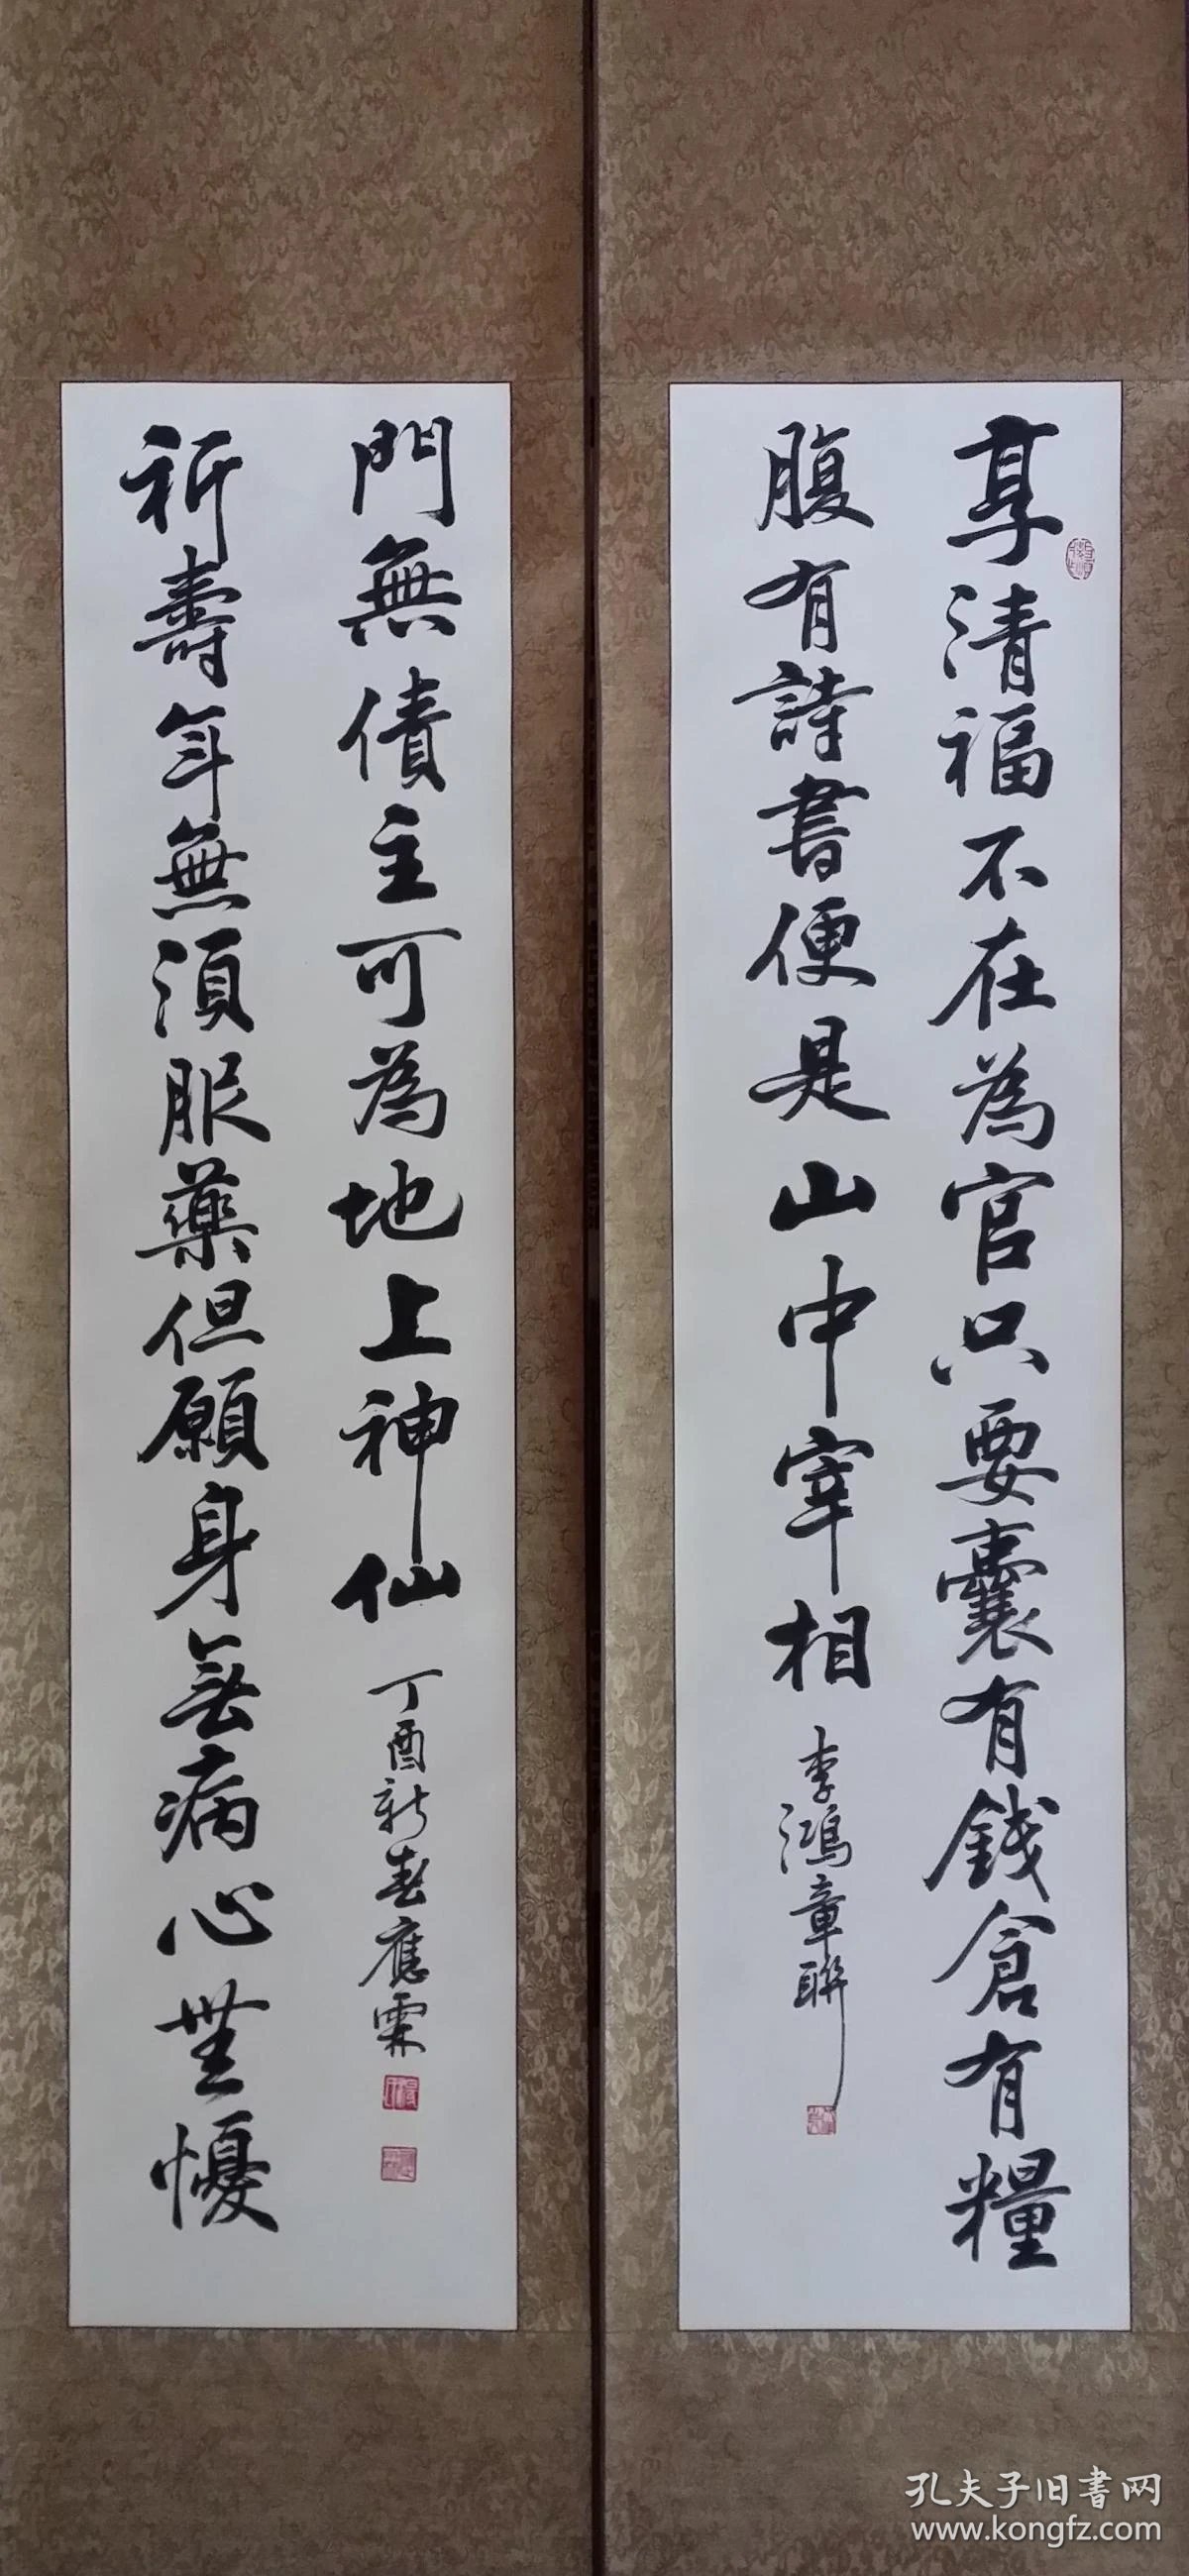 享清福不在為官只要囊有錢倉有糧
腹有詩書便是山中宰相
李鴻章聯
祈壽年無須服藥但願身無病心無憂
門無債主可為地上神仙
丁酉新春應霖
孔夫子旧书网
www.kongfz.com